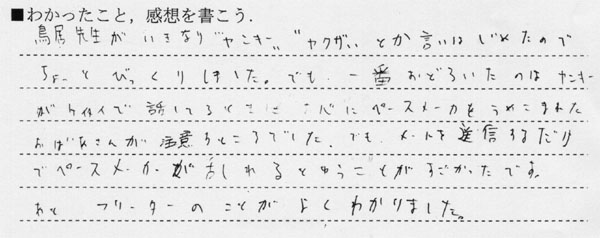 ■わかったこと，感想を書こう．
鳥居先生がいきなり"ヤンキー""ヤクザ"とか言いはじめたので
ちょーとびっくりしました。でも、一番おどろいたのはヤンキー
がケイタイで話してるときに 心にペースメーカをうめこまれた
おばあさんが注意るところでした。でも、メールを送信するだけ
でペースメーカーが乱れるとゆうことがすごかったです。
あと フリーターのことがよくわかりました。